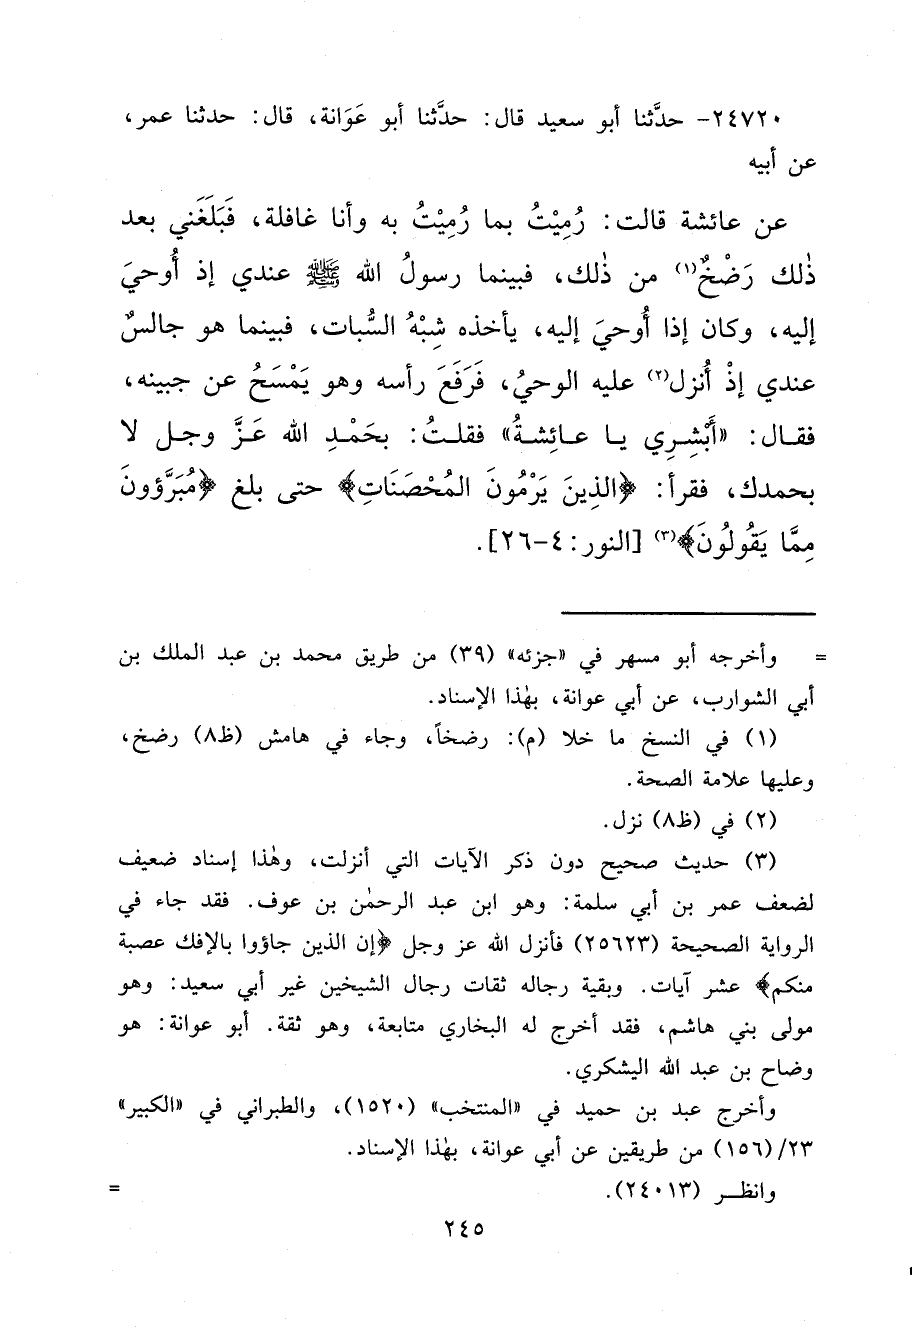 ٢٤٧٢٠- حدَّثنا أبو سعيد قال: حدَّثنا أبو عَوَانة، قال: حدثنا عمر،
عن أبيه
عن عائشة قالت: رُمِيْتُ بما رُمِيْتُ به وأنا غافلة، فَبَلَغَني بعد
ذٰلك رَضْخٌ(١) من ذٰلك، فبينما رسولُ الله ﷺ عندي إذ أُوحيَ
إليه، وكان إذا أُوحيَ إليه، يأخذه شِبْهُ السُّبات، فبينما هو جالسٌ
عندي إذْ أُنزل(٢) عليه الوحيُ، فَرَفَعَ رأسه وهو يَمْسَحُ عن جبينه،
فقال: «أَبْشِري يا عائِشةُ» فقلتُ: بحَمْدِ الله عَزَّ وجل لا
بحمدك، فقرأ: ﴿الذِينَ يَرْمُونَ المُحْصَنَاتِ﴾ حتى بلغ ﴿مُبَرَّؤونَ
مِمَّا يَقُولُونَ﴾(٣) [النور: ٤-٢٦].
= وأخرجه أبو مسهر في «جزئه» (٣٩) من طريق محمد بن عبد الملك بن
أبي الشوارب، عن أبي عوانة، بهٰذا الإسناد.
(١) في النسخ ما خلا (م): رضخاً، وجاء في هامش (ظ٨) رضخ،
وعليها علامة الصحة.
(٢) في (ظ٨) نزل.
(٣) حديث صحيح دون ذكر الآيات التي أنزلت، وهٰذا إسناد ضعيف
لضعف عمر بن أبي سلمة: وهو ابن عبد الرحمٰن بن عوف. فقد جاء في
الرواية الصحيحة (٢٥٦٢٣) فأنزل الله عز وجل ﴿إن الذين جاؤوا بالإفك عصبة
منكم﴾ عشر آيات. وبقية رجاله ثقات رجال الشيخين غير أبي سعيد: وهو
مولى بني هاشم، فقد أخرج له البخاري متابعة، وهو ثقة. أبو عوانة: هو
وضاح بن عبد الله اليشكري.
وأخرج عبد بن حميد في «المنتخب» (١٥٢٠)، والطبراني في «الكبير»
٢٣/(١٥٦) من طريقين عن أبي عوانة، بهٰذا الإسناد.
وانظر (٢٤٠١٣). =
٢٤٥